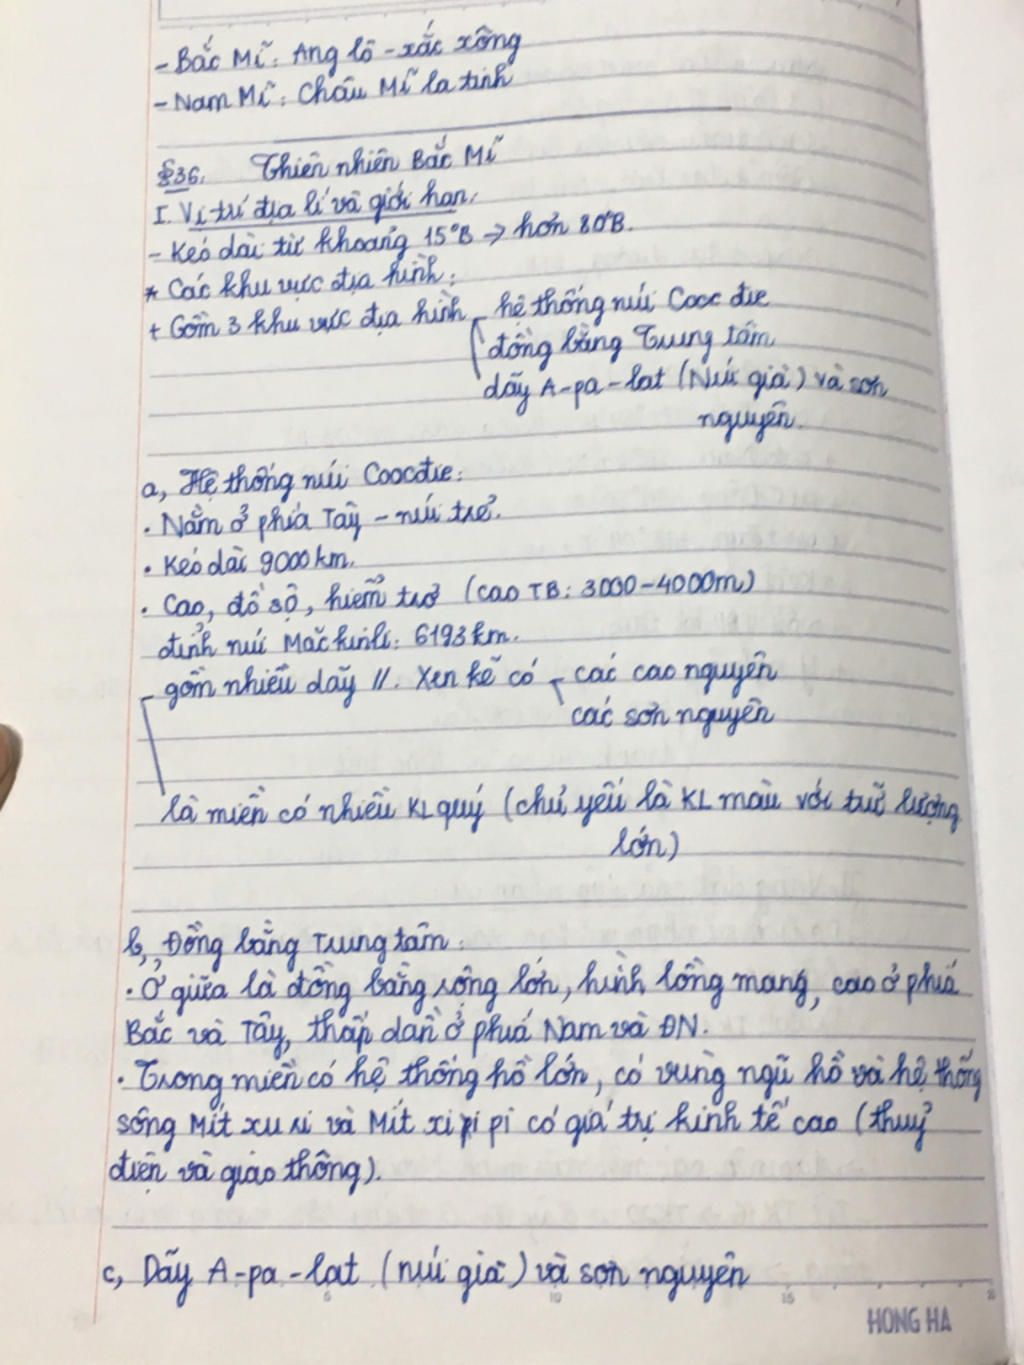 - Bắc Mĩ: Ang lô - xắc xông
- Nam Mĩ: Châu Mĩ la tinh
§36. Thiên nhiên Bắc Mĩ
I. Vị trí địa lí và giới hạn.
- Kéo dài từ khoảng 15°B → hơn 80°B.
* Các khu vực địa hình:
+ Gồm 3 khu vực địa hình hệ thống núi Cooc đie
đồng bằng Trung tâm
dãy A-pa-lat (Núi già) và sơn
nguyên.
a, Hệ thống núi Coocđie:
• Nằm ở phía Tây - núi trẻ.
• Kéo dài 9000km.
• Cao, đồ sộ, hiểm trở (cao TB: 3000-4000m)
đỉnh núi Măckinli: 6193km.
gồm nhiều dãy //. Xen kẽ có các cao nguyên
các sơn nguyên
là miền có nhiều KL quý (chủ yếu là KL màu với trữ lượng
lớn)
b, Đồng bằng Trung tâm:
• Ở giữa là đồng bằng rộng lớn, hình lòng máng, cao ở phía
Bắc và Tây, thấp dần ở phía Nam và ĐN.
• Trong miền có hệ thống hồ lớn, có vùng ngũ hồ và hệ thống
sông Mít xu ri và Mít xi pi pi có giá trị kinh tế cao (thuỷ
điện và giao thông).
c, Dãy A-pa-lat (núi già) và sơn nguyên
5 10 15 20
HONG HA